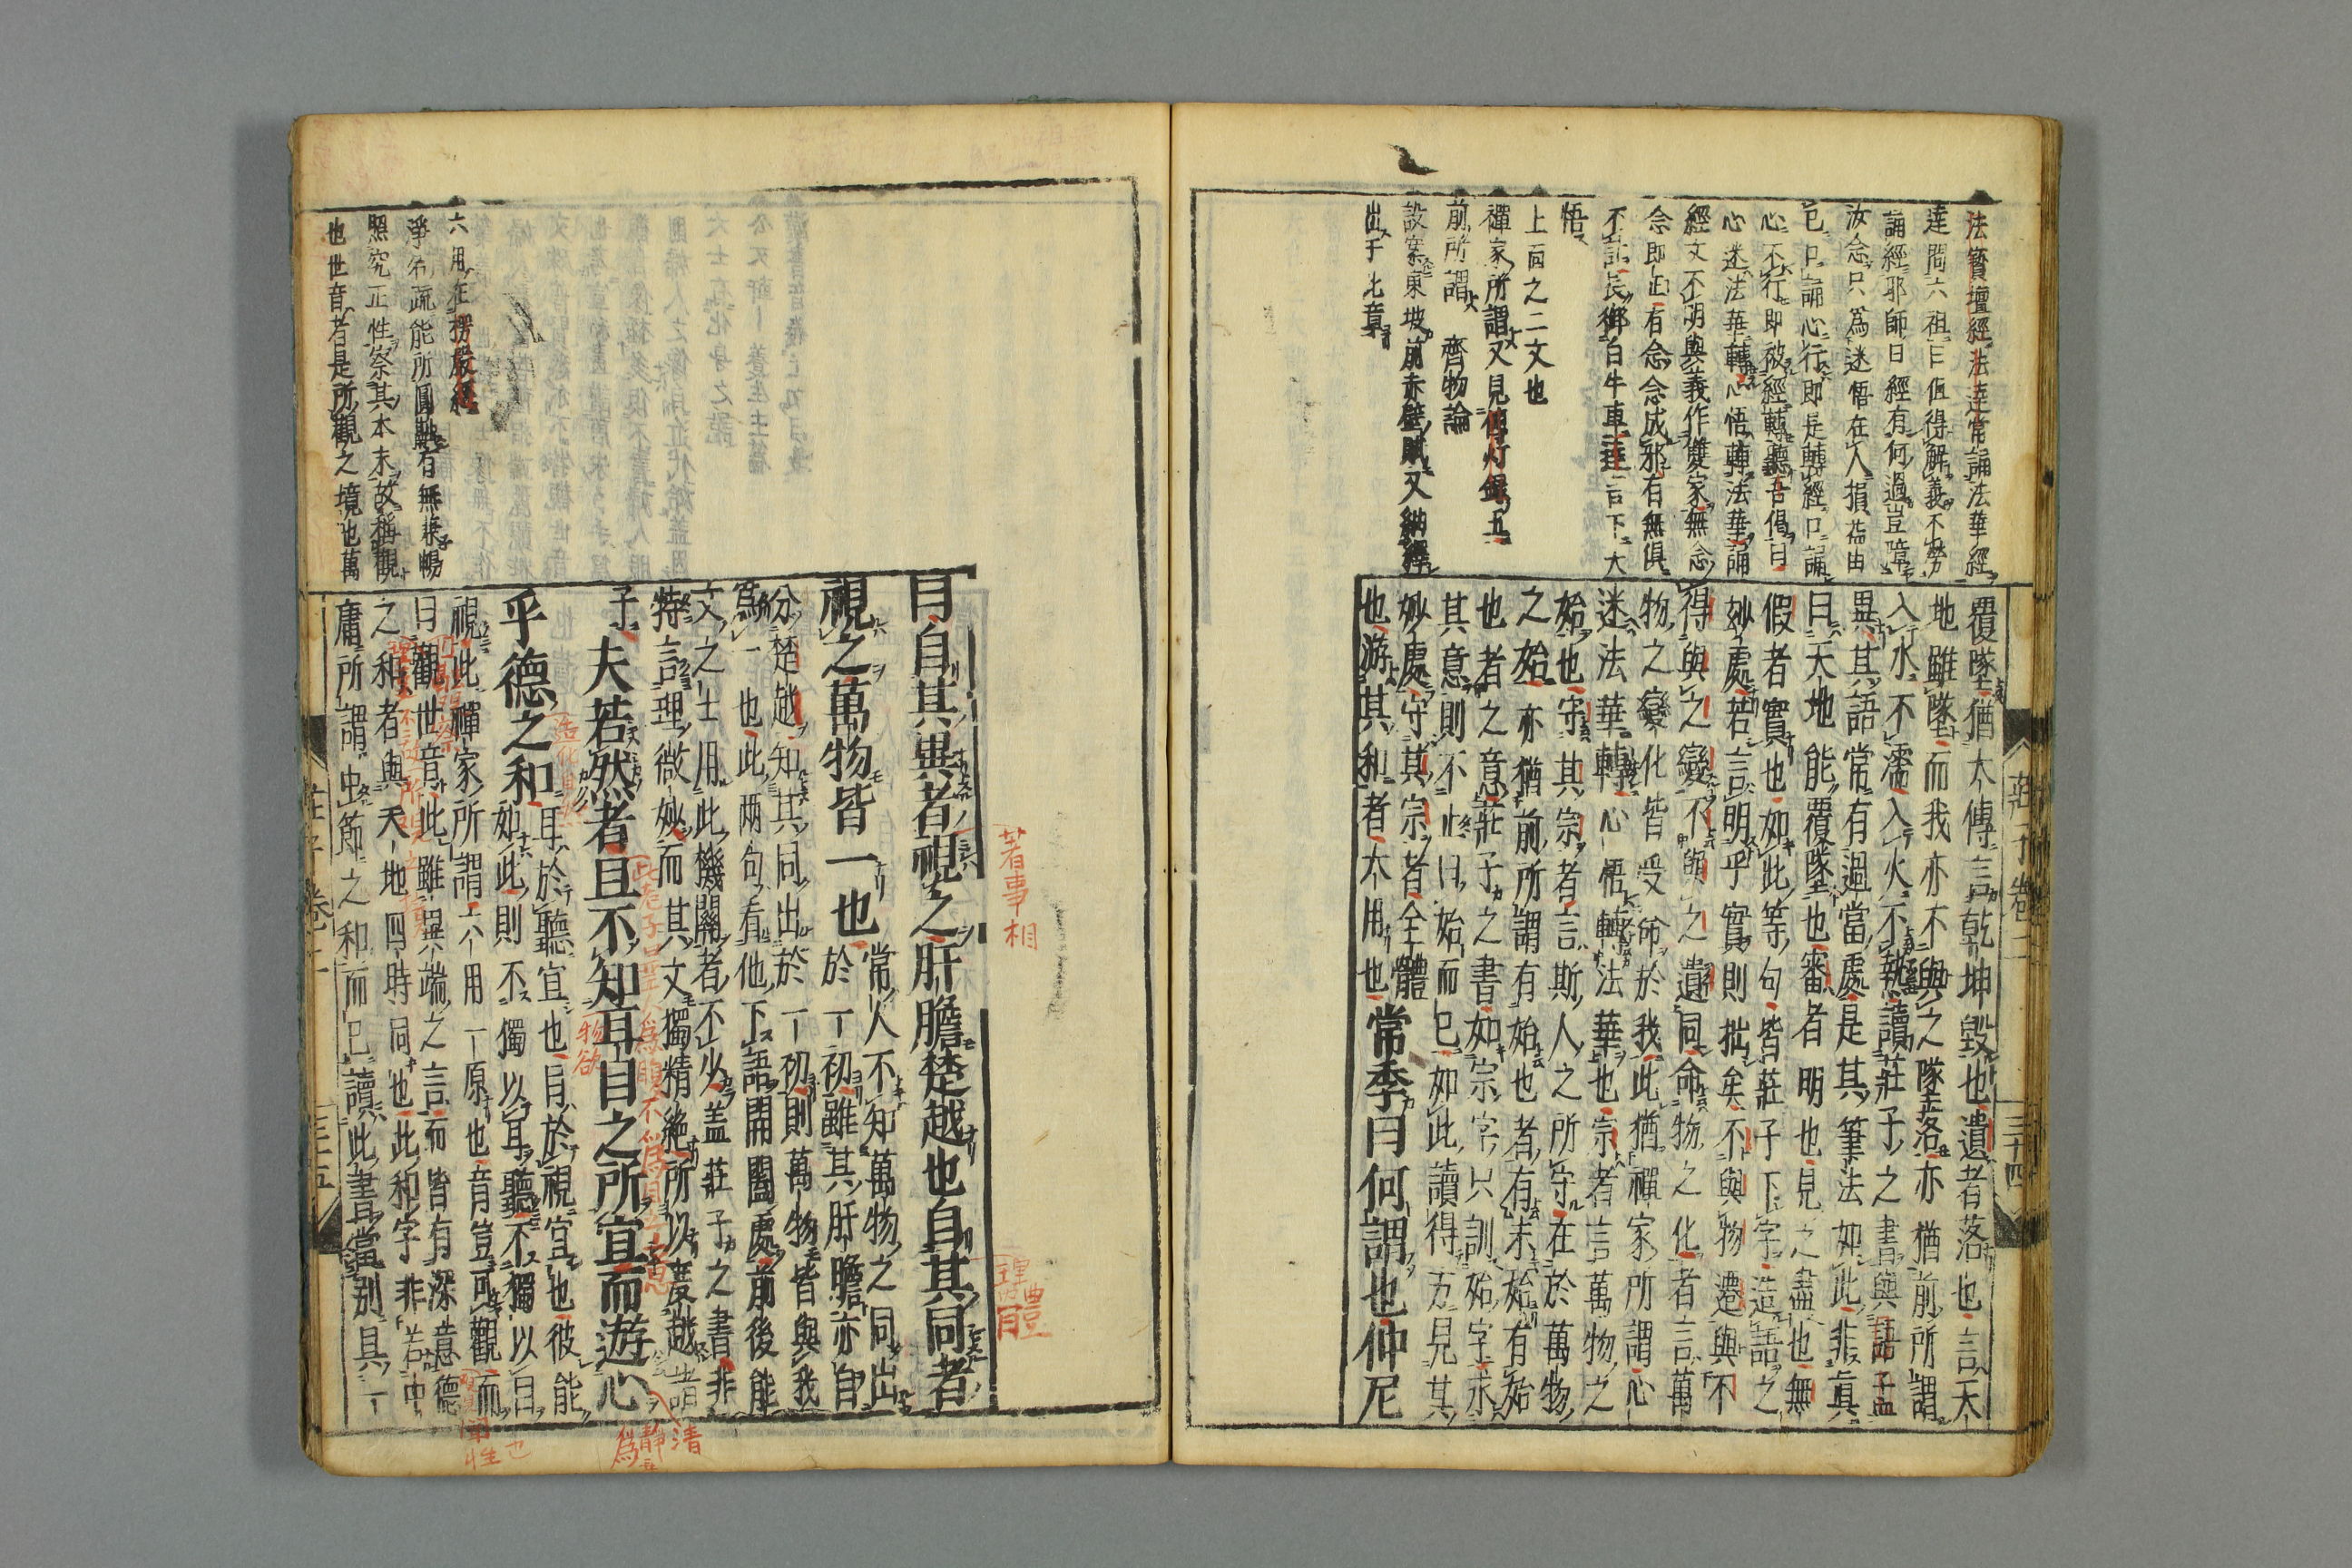 法寶壇經法達常誦法華經
達問六祖曰但得解義不勞
誦經耶師曰經有何過豈障
汝念只爲迷悟在人損益由
已口誦心行即是轉經口誦
心不行即被經轉聽吾偈曰
心迷法華轉心悟轉法華誦
經文不明與義作讎家無念
念即正有念念成邪有無俱
不計長御白牛車達言下大
悟
上面之二文也
禪家所謂又見傳灯録五
前所謂 齊物論
設案東坡前赤壁賦又納經
出于此章
覆墜猶大傳言乾坤毀也遺者落也言天
地雖墜而我亦不與之墜落亦猶前所謂
入水不濡入火不熱讀莊子之書與語孟
異其語常有過當處是其筆法如此非眞
曰天地能覆墜也審者明也見之盡也無
假者實也如此等句皆莊子下字造語之
妙處若言明乎實則拙矣不與物遷與不
得與之變不與之遺同命物之化者言萬
物之變化皆受命於我此猶禪家所謂心
迷法華轉心悟轉法華也宗者言萬物之
始也守其宗者言斯人之所守在於萬物
之始亦猶前所謂有始也者有未始有始
也者之意莊子之書如宗字只訓始字求
其意則不止曰始而已如此讀得方見其
妙處守其宗者全體
也游其和者大用也常季曰何謂也仲尼
莊子卷二
三十四
曰自其異者視之肝膽楚越也自其同者
視之萬物皆一也常人不知萬物之同出
於一初雖其肝膽亦自
分楚越知其同出於一初則萬物皆與我
爲一也此兩句看他下語開闔處前後能
文之士用此機關者不少蓋莊子之書非
特言理微妙而其文獨精絶所以度越諸
子夫若然者且不知耳目之所宜而遊心
乎德之和耳於聽宜也目於視宜也彼能
如此則不獨以耳聽不獨以目
視此禪家所謂六用一原也音豈可觀而
曰觀世音此雖異端之言而皆有深意德
之和者與天地四時同也此和字非若中
庸所謂中節之和而已讀此書當別具一
六用在楞嚴經
淨名疏能所圓融有無兼暢
照究正性察其本末故稱觀
也世音者是所觀之境也萬
著事相
理體
造化自然
物欲